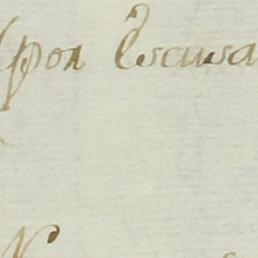 por Escusa
N